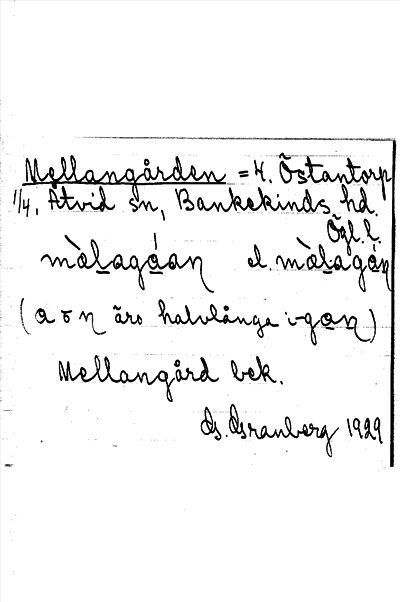 Mellangården = H. Östantorp
1/4, Åtvid sn, Bankekinds hd.
Ögl. l.
màlagáaŋ el. màlagáŋ
(a o ŋ äro halvlånga i -gaŋ)
Mellangård bek.
G. Granberg 1929